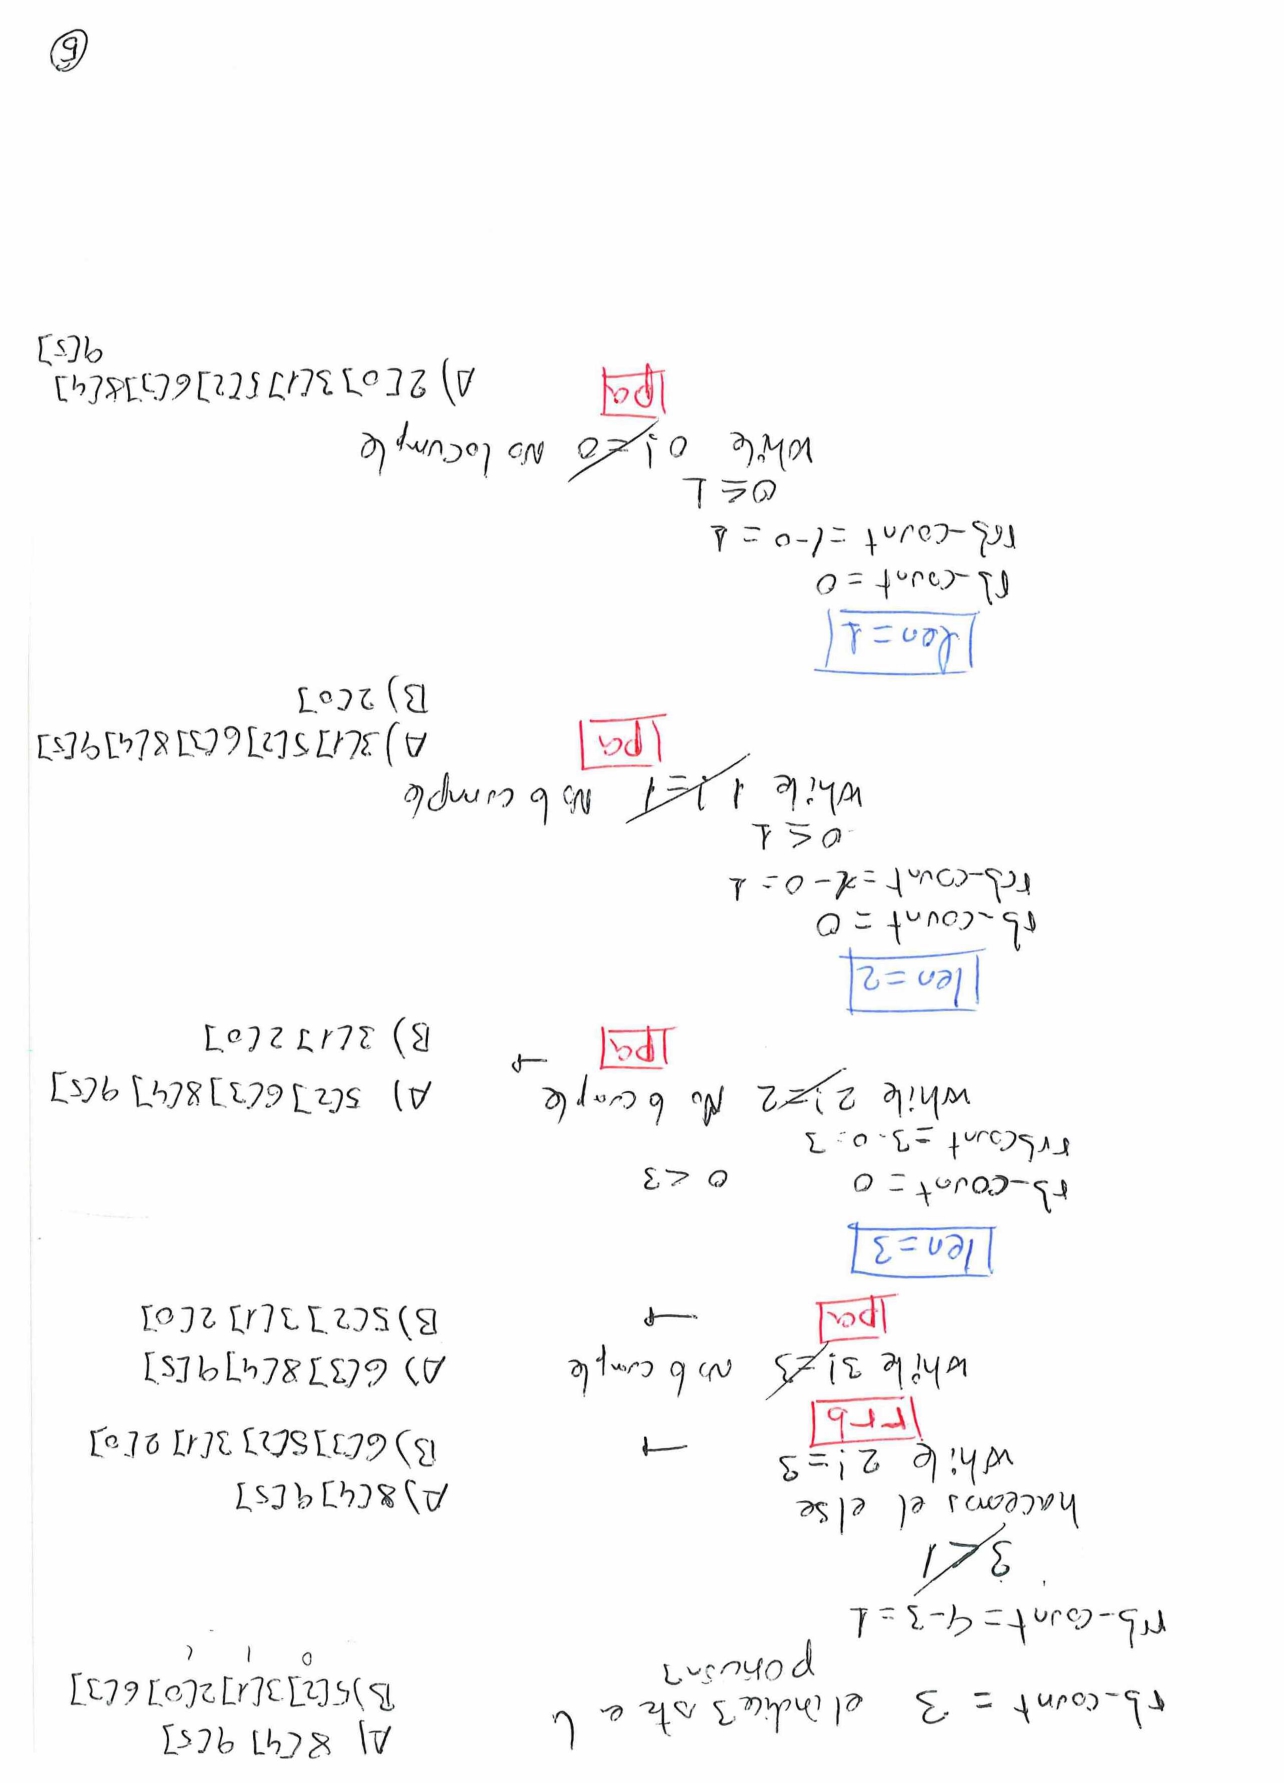 rb-count = 3 el indice 3 sta en l
posición 3
A) 8[4] 9[5]
B) 5[2] 3[1] 2[0] 6[3]
0 1 2
rrb-count = 4-3 = 1
3<1
hacemos el else
while 2 != 3 →
rrb
A) 8[4] 9[5]
B) 6[3] 5[2] 3[1] 2[0]
while 3 != 3 No lo cumple
pa →
A) 6[3] 8[4] 9[5]
B) 5[2] 3[1] 2[0]
len = 3
rb-count = 0 0 < 3
rrbcount = 3-0=3
while 2 != 2 No lo cumple
pa →
A) 5[2] 6[3] 8[4] 9[5]
B) 3[1] 2[0]
len = 2
rb-count = 0
rrb-count = 1-0 = 1
0 ≤ 1
while 1 != 1 No lo cumple
pa
A) 3[1] 5[2] 6[3] 8[4] 9[5]
B) 2[0]
len = 1
rb-count = 0
rrb-count = 1-0 = 1
0 ≤ 1
while 0 != 0 No lo cumple
pa
A) 2[0] 3[1] 5[2] 6[3] 8[4]
9[5]
5